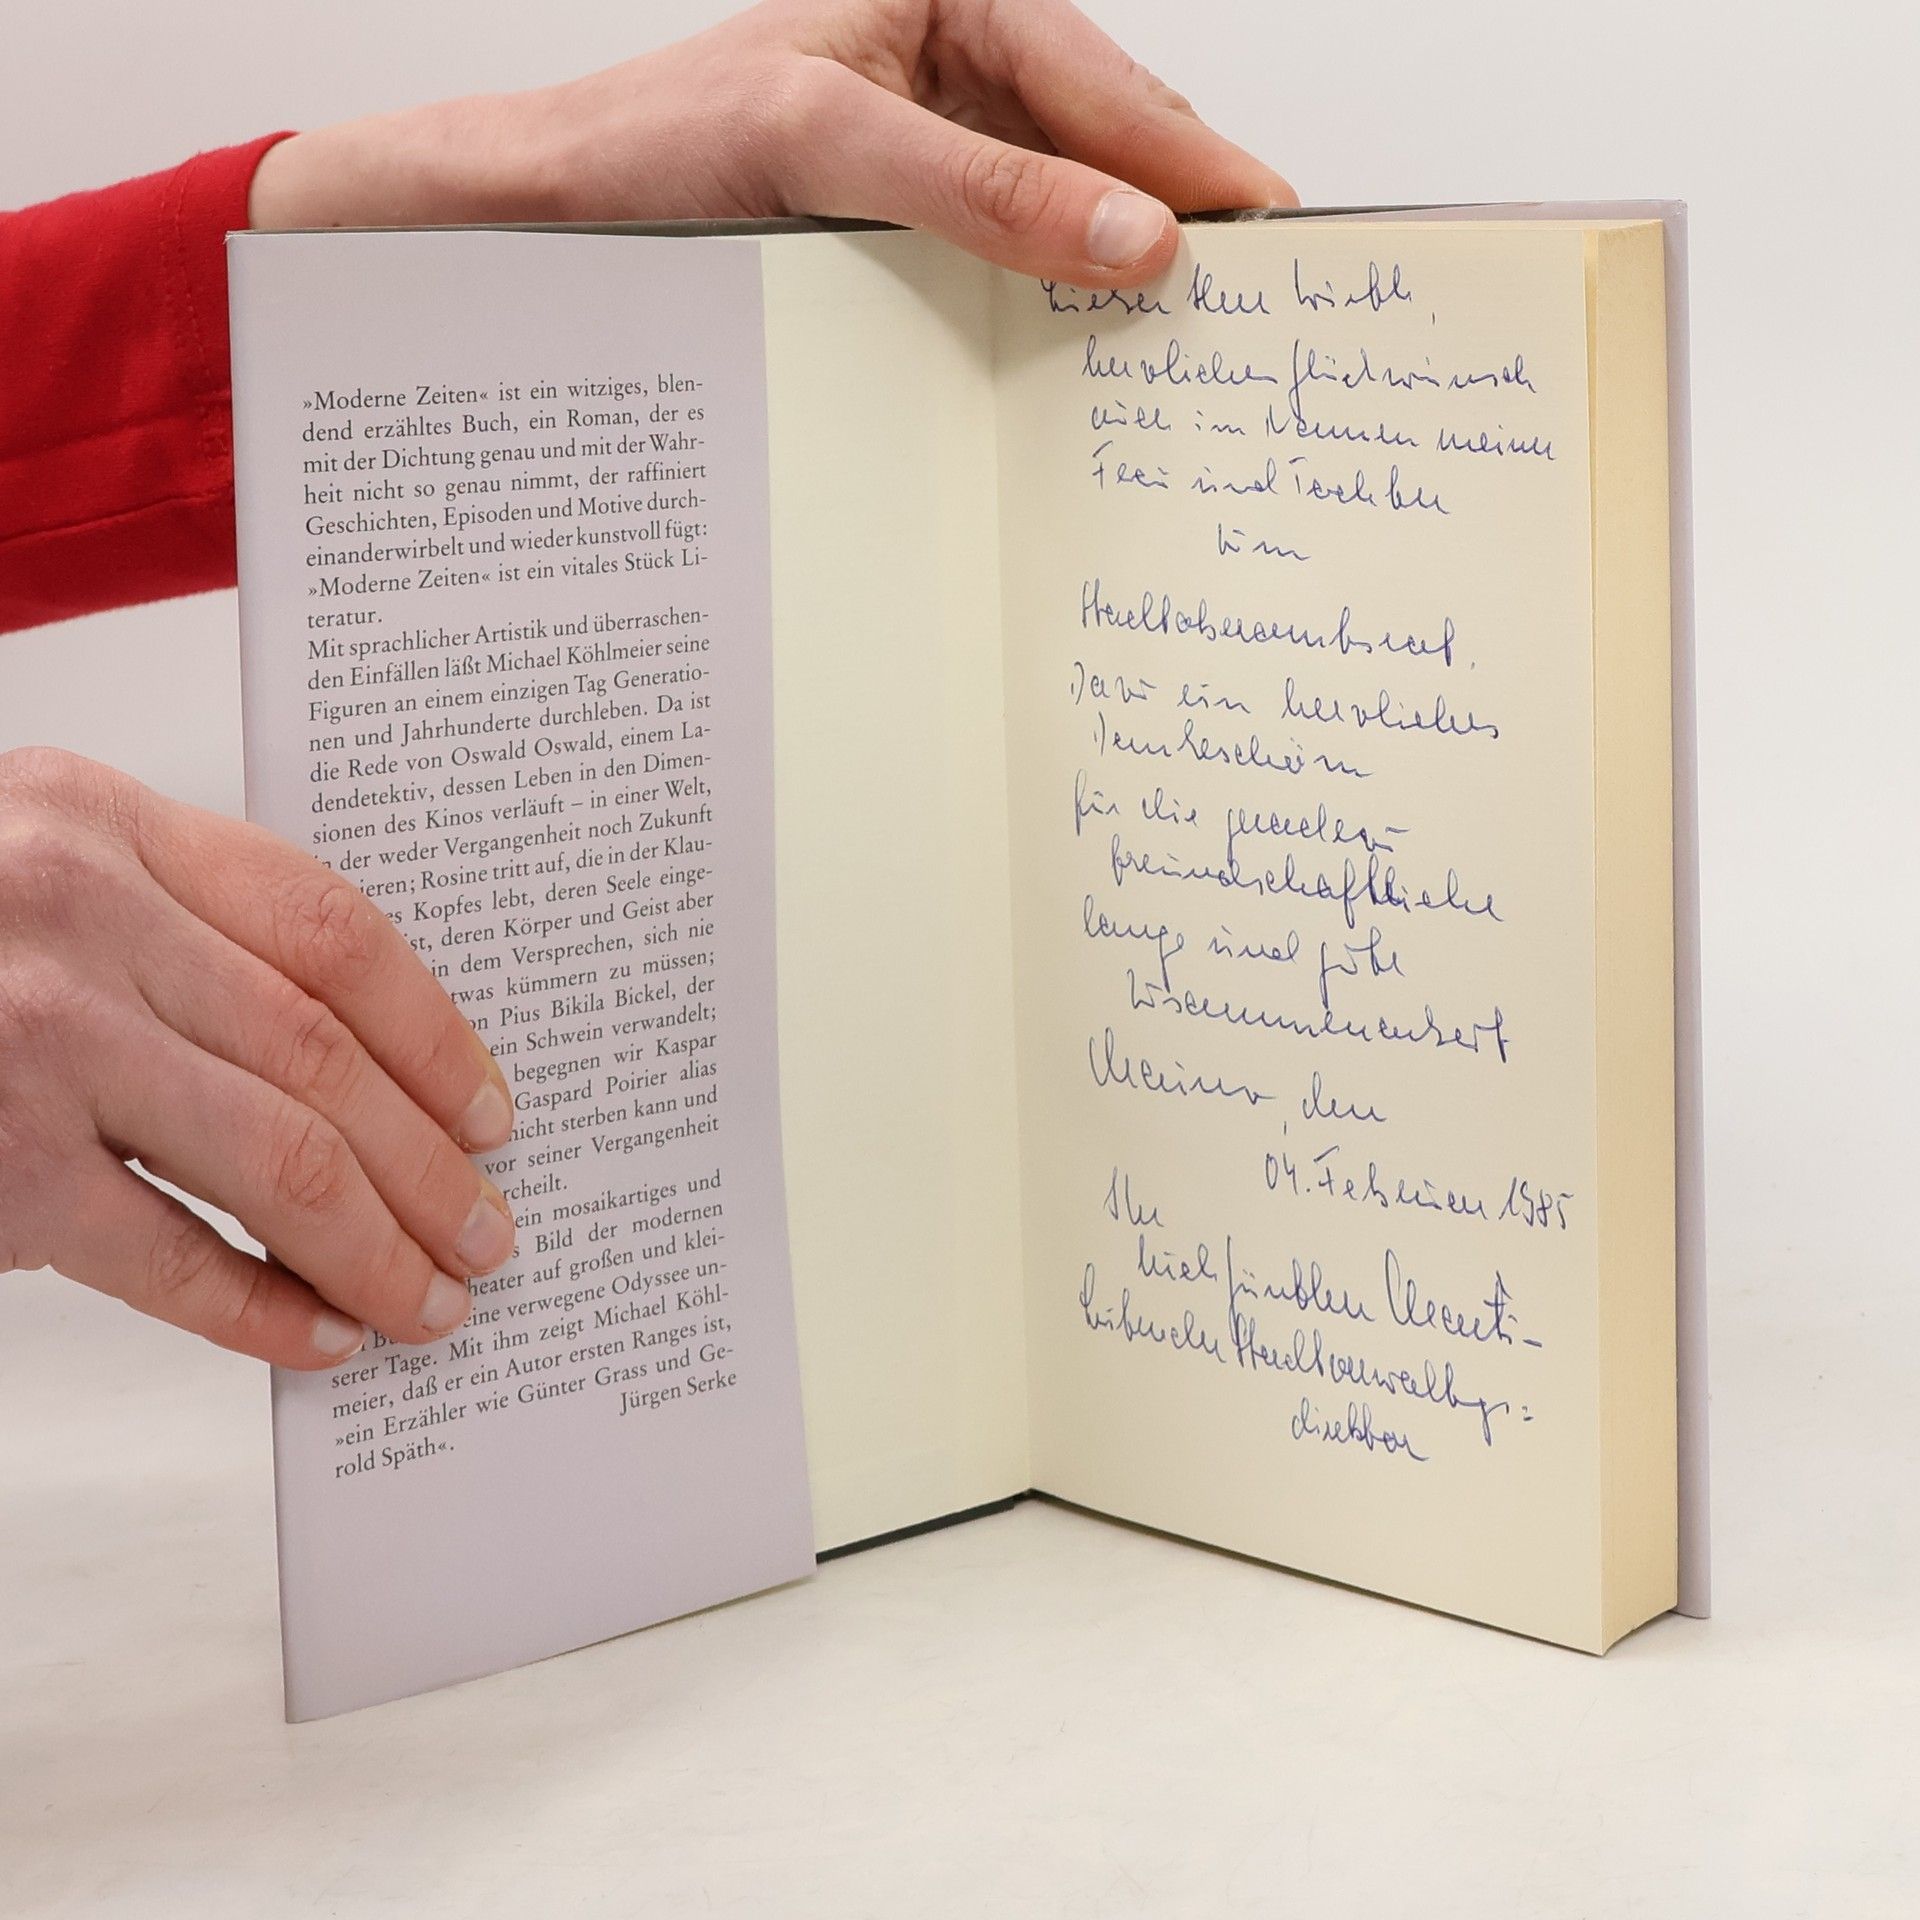 »Moderne Zeiten« ist ein witziges, blen-
dend erzähltes Buch, ein Roman, der es
mit der Dichtung genau und mit der Wahr-
heit nicht so genau nimmt, der raffiniert
Geschichten, Episoden und Motive durch-
einanderwirbelt und wieder kunstvoll fügt:
»Moderne Zeiten« ist ein vitales Stück Li-
teratur.
Mit sprachlicher Artistik und überraschen-
den Einfällen läßt Michael Köhlmeier seine
Figuren an einem einzigen Tag Generatio-
nen und Jahrhunderte durchleben. Da ist
die Rede von Oswald Oswald, einem La-
dendetektiv, dessen Leben in den Dimen-
sionen des Kinos verläuft – in einer Welt,
in der weder Vergangenheit noch Zukunft
ieren; Rosine tritt auf, die in der Klau-
es Kopfes lebt, deren Seele einge-
ist, deren Körper und Geist aber
in dem Versprechen, sich nie
twas kümmern zu müssen;
on Pius Bikila Bickel, der
ein Schwein verwandelt;
begegnen wir Kaspar
Gaspard Poirier alias
nicht sterben kann und
vor seiner Vergangenheit
rcheilt.
ein mosaikartiges und
s Bild der modernen
heater auf großen und klei-
eine verwegene Odyssee un-
serer Tage. Mit ihm zeigt Michael Köhl-
meier, daß er ein Autor ersten Ranges ist,
»ein Erzähler wie Günter Grass und Ge-
rold Späth«.
Jürgen Serke
Lieber Herr
herzlichen Glückwunsch
auch im Namen meiner
Frau und Tochter
zum
Stadtoberamtsrat.
Dazu ein herzliches
Dankeschön
für die geradezu
freundschaftliche
lange und gute
Zusammenarbeit
Mainz, den
04. Februar 1985
Ihr
Leitender Stadtverwaltungs=
direktor